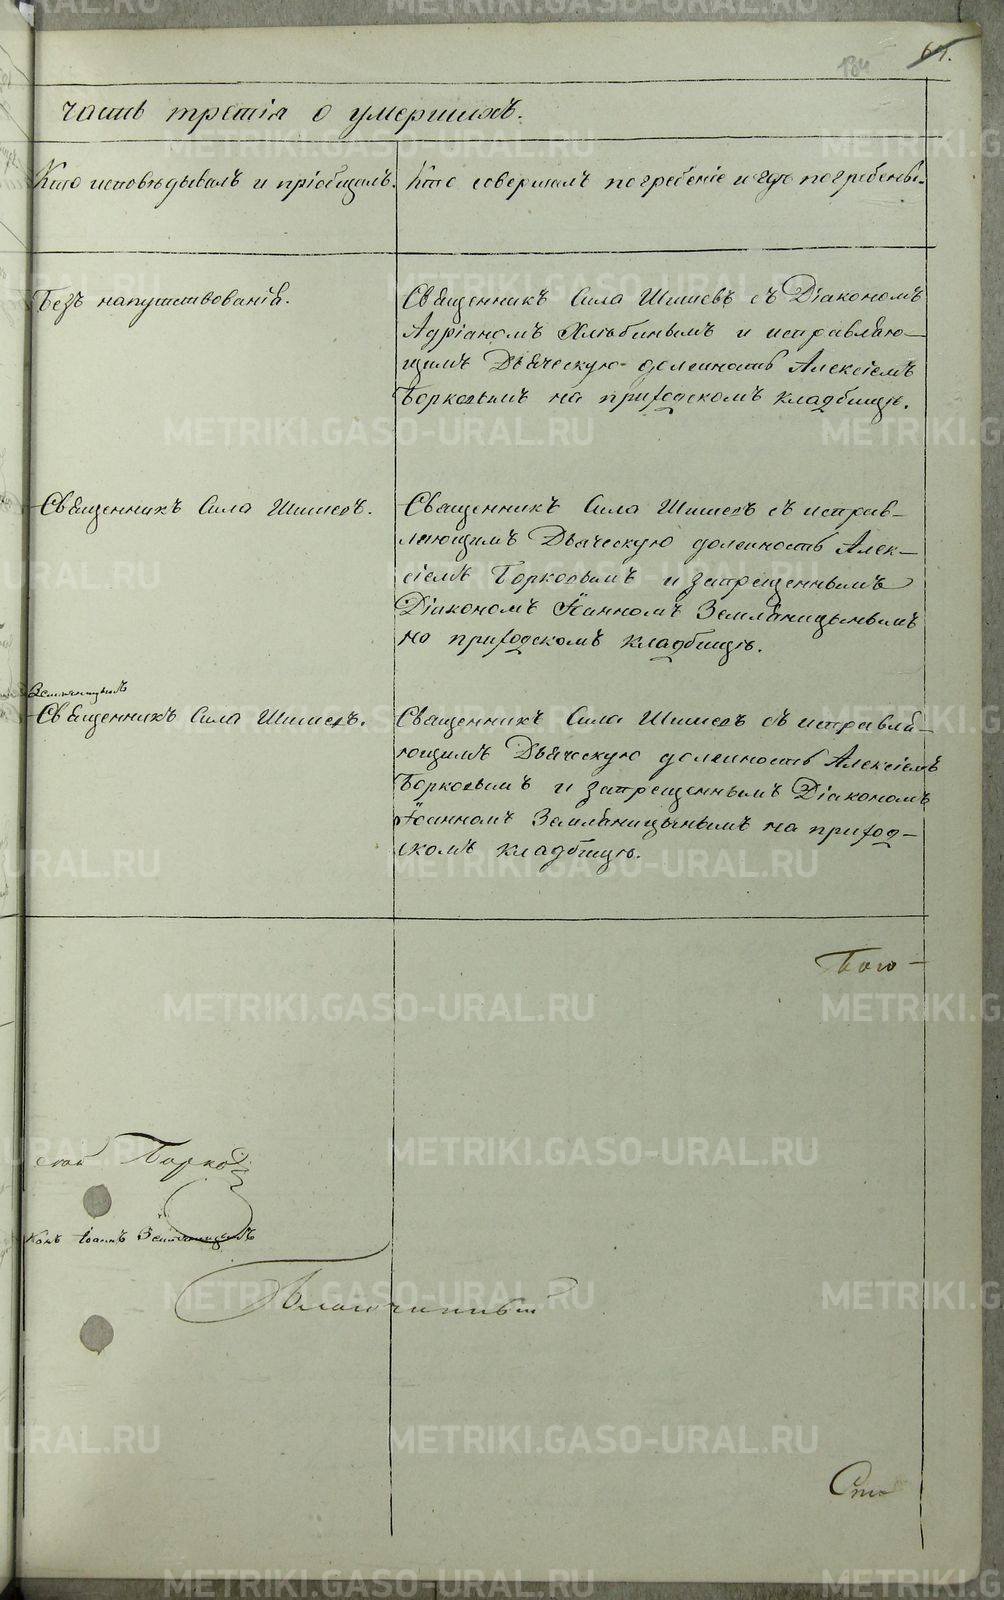 134 64.
часть третія о умершихъ.
Кто исповѣдывалъ и пріобщалъ.
Кто совершалъ погребеніе и гдѣ погребены.
Безъ напутствованія.
Священникъ Сила Шишевъ съ Діакономъ
Адріаномъ Хлѣбинымъ и исправляю-
щимъ Дьяческую должность Алексіемъ
Борковымъ на приходскомъ кладбищѣ.
Священникъ Сила Шишевъ.
Священникъ Сила Шишевъ съ исправ-
ляющимъ Дьяческую должность Алек-
сіемъ Борковымъ и запрещеннымъ
Діакономъ Іоанномъ Земляницынымъ
на приходскомъ кладбищѣ.
Земляницынъ
Священникъ Сила Шишевъ.
Священникъ Сила Шишевъ съ исправля-
ющимъ Дьяческую должность Алексіемъ
Борковымъ и запрещеннымъ Діакономъ
Іоанномъ Земляницынымъ на приход-
скомъ кладбищѣ.
Благочинный
METRIKI.GASO-URAL.RU